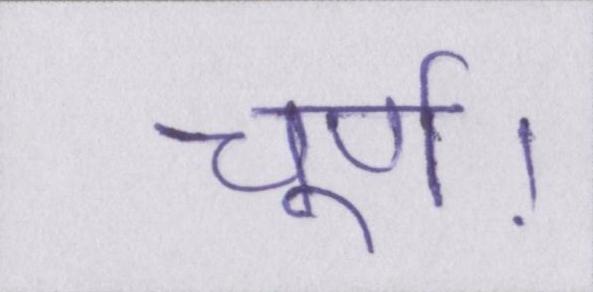 चूर्ण!